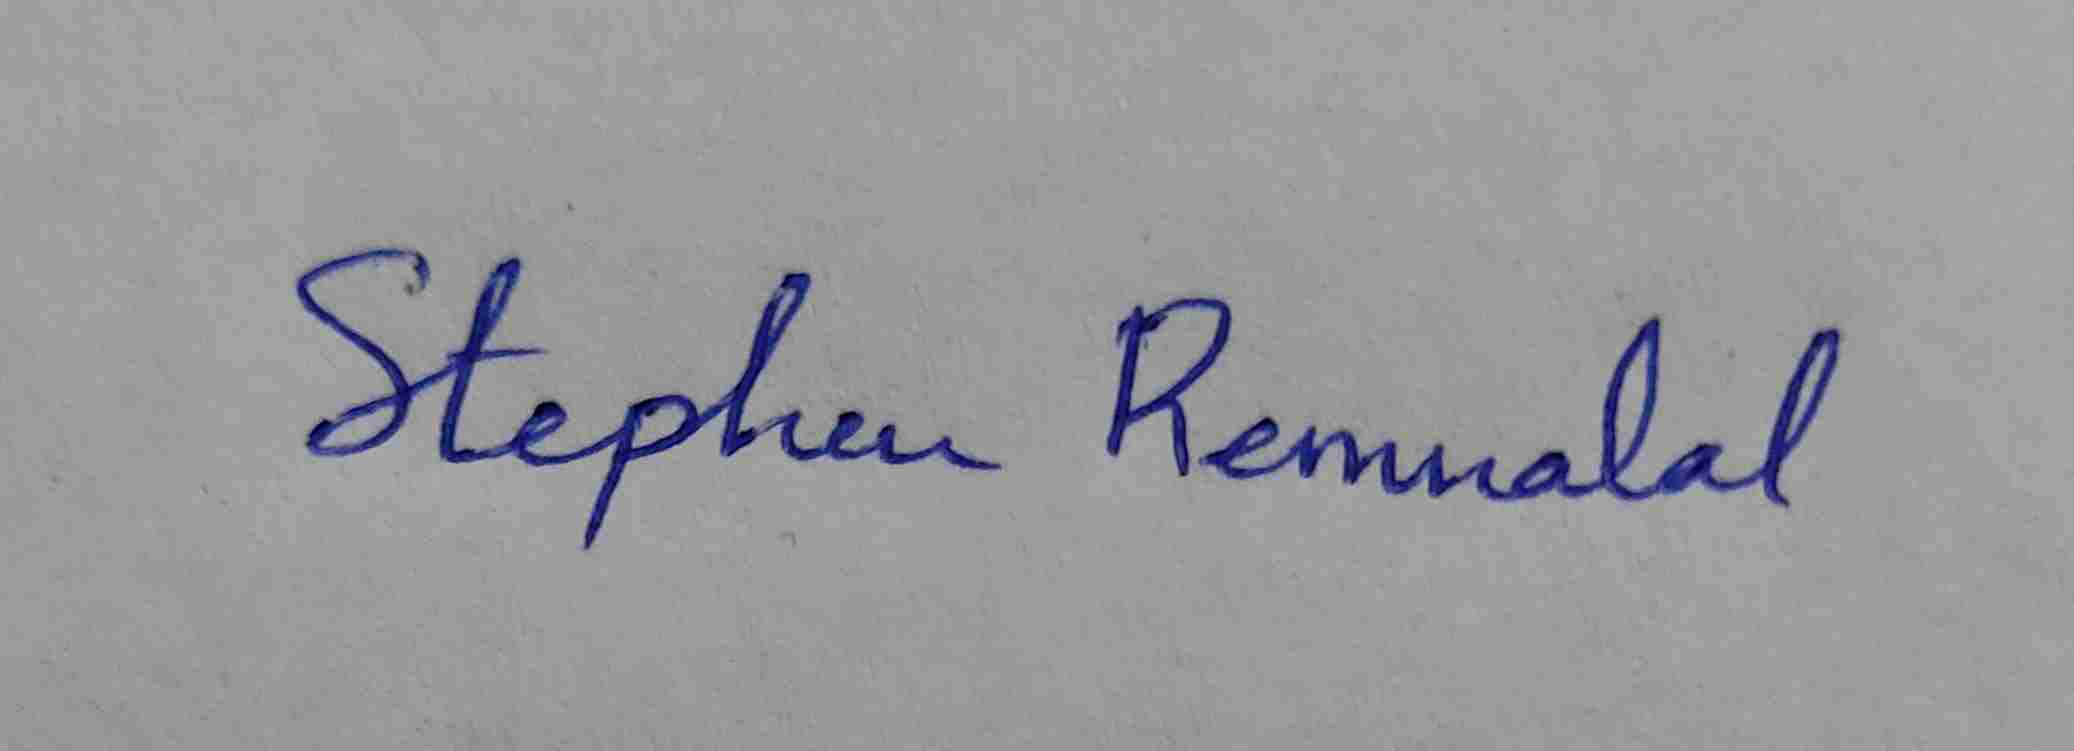 Stephen Remnalal